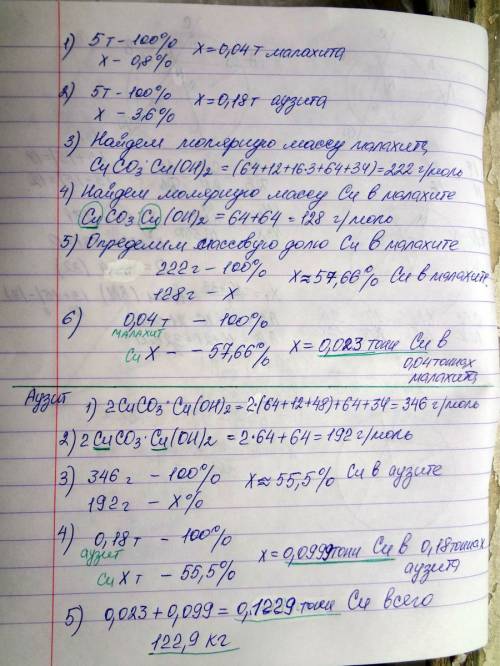 1) 5т – 100%
х – 0,8% х = 0,04 т малахита
2) 5т – 100%
х – 3,6% х = 0,18 т аузита
3) Найдем молярную массу малахита
CuCO3·Cu(OH)2 = (64+12+16·3+64+34) = 222 г/моль
4) Найдем молярную массу Cu в малахите
CuCO3 Cu(OH)2 = 64+64 = 128 г/моль
5) Определим массовую долю Cu в малахите
222г – 100%
128г – х х ≈ 57,66% Cu в малахите
6) 0,04т – 100%
малахит
Cu х – – 57,66% х = 0,023 тонн Cu в
0,04 тоннах
малахита
Аузит
1) 2CuCO3·Cu(OH)2 = 2·(64+12+48)+64+34 = 346 г/моль
2) 2CuCO3·Cu(OH)2 = 2·64+64 = 192 г/моль
3) 346г – 100%
192г – х% х ≈ 55,5% Cu в аузите
4) 0,18т – 100%
аузит
Cu х т – 55,5% х = 0,0999 тонн Cu в 0,18 тоннах
аузита
5) 0,023 + 0,099 = 0,1229 тонн Cu всего
122,9 кг